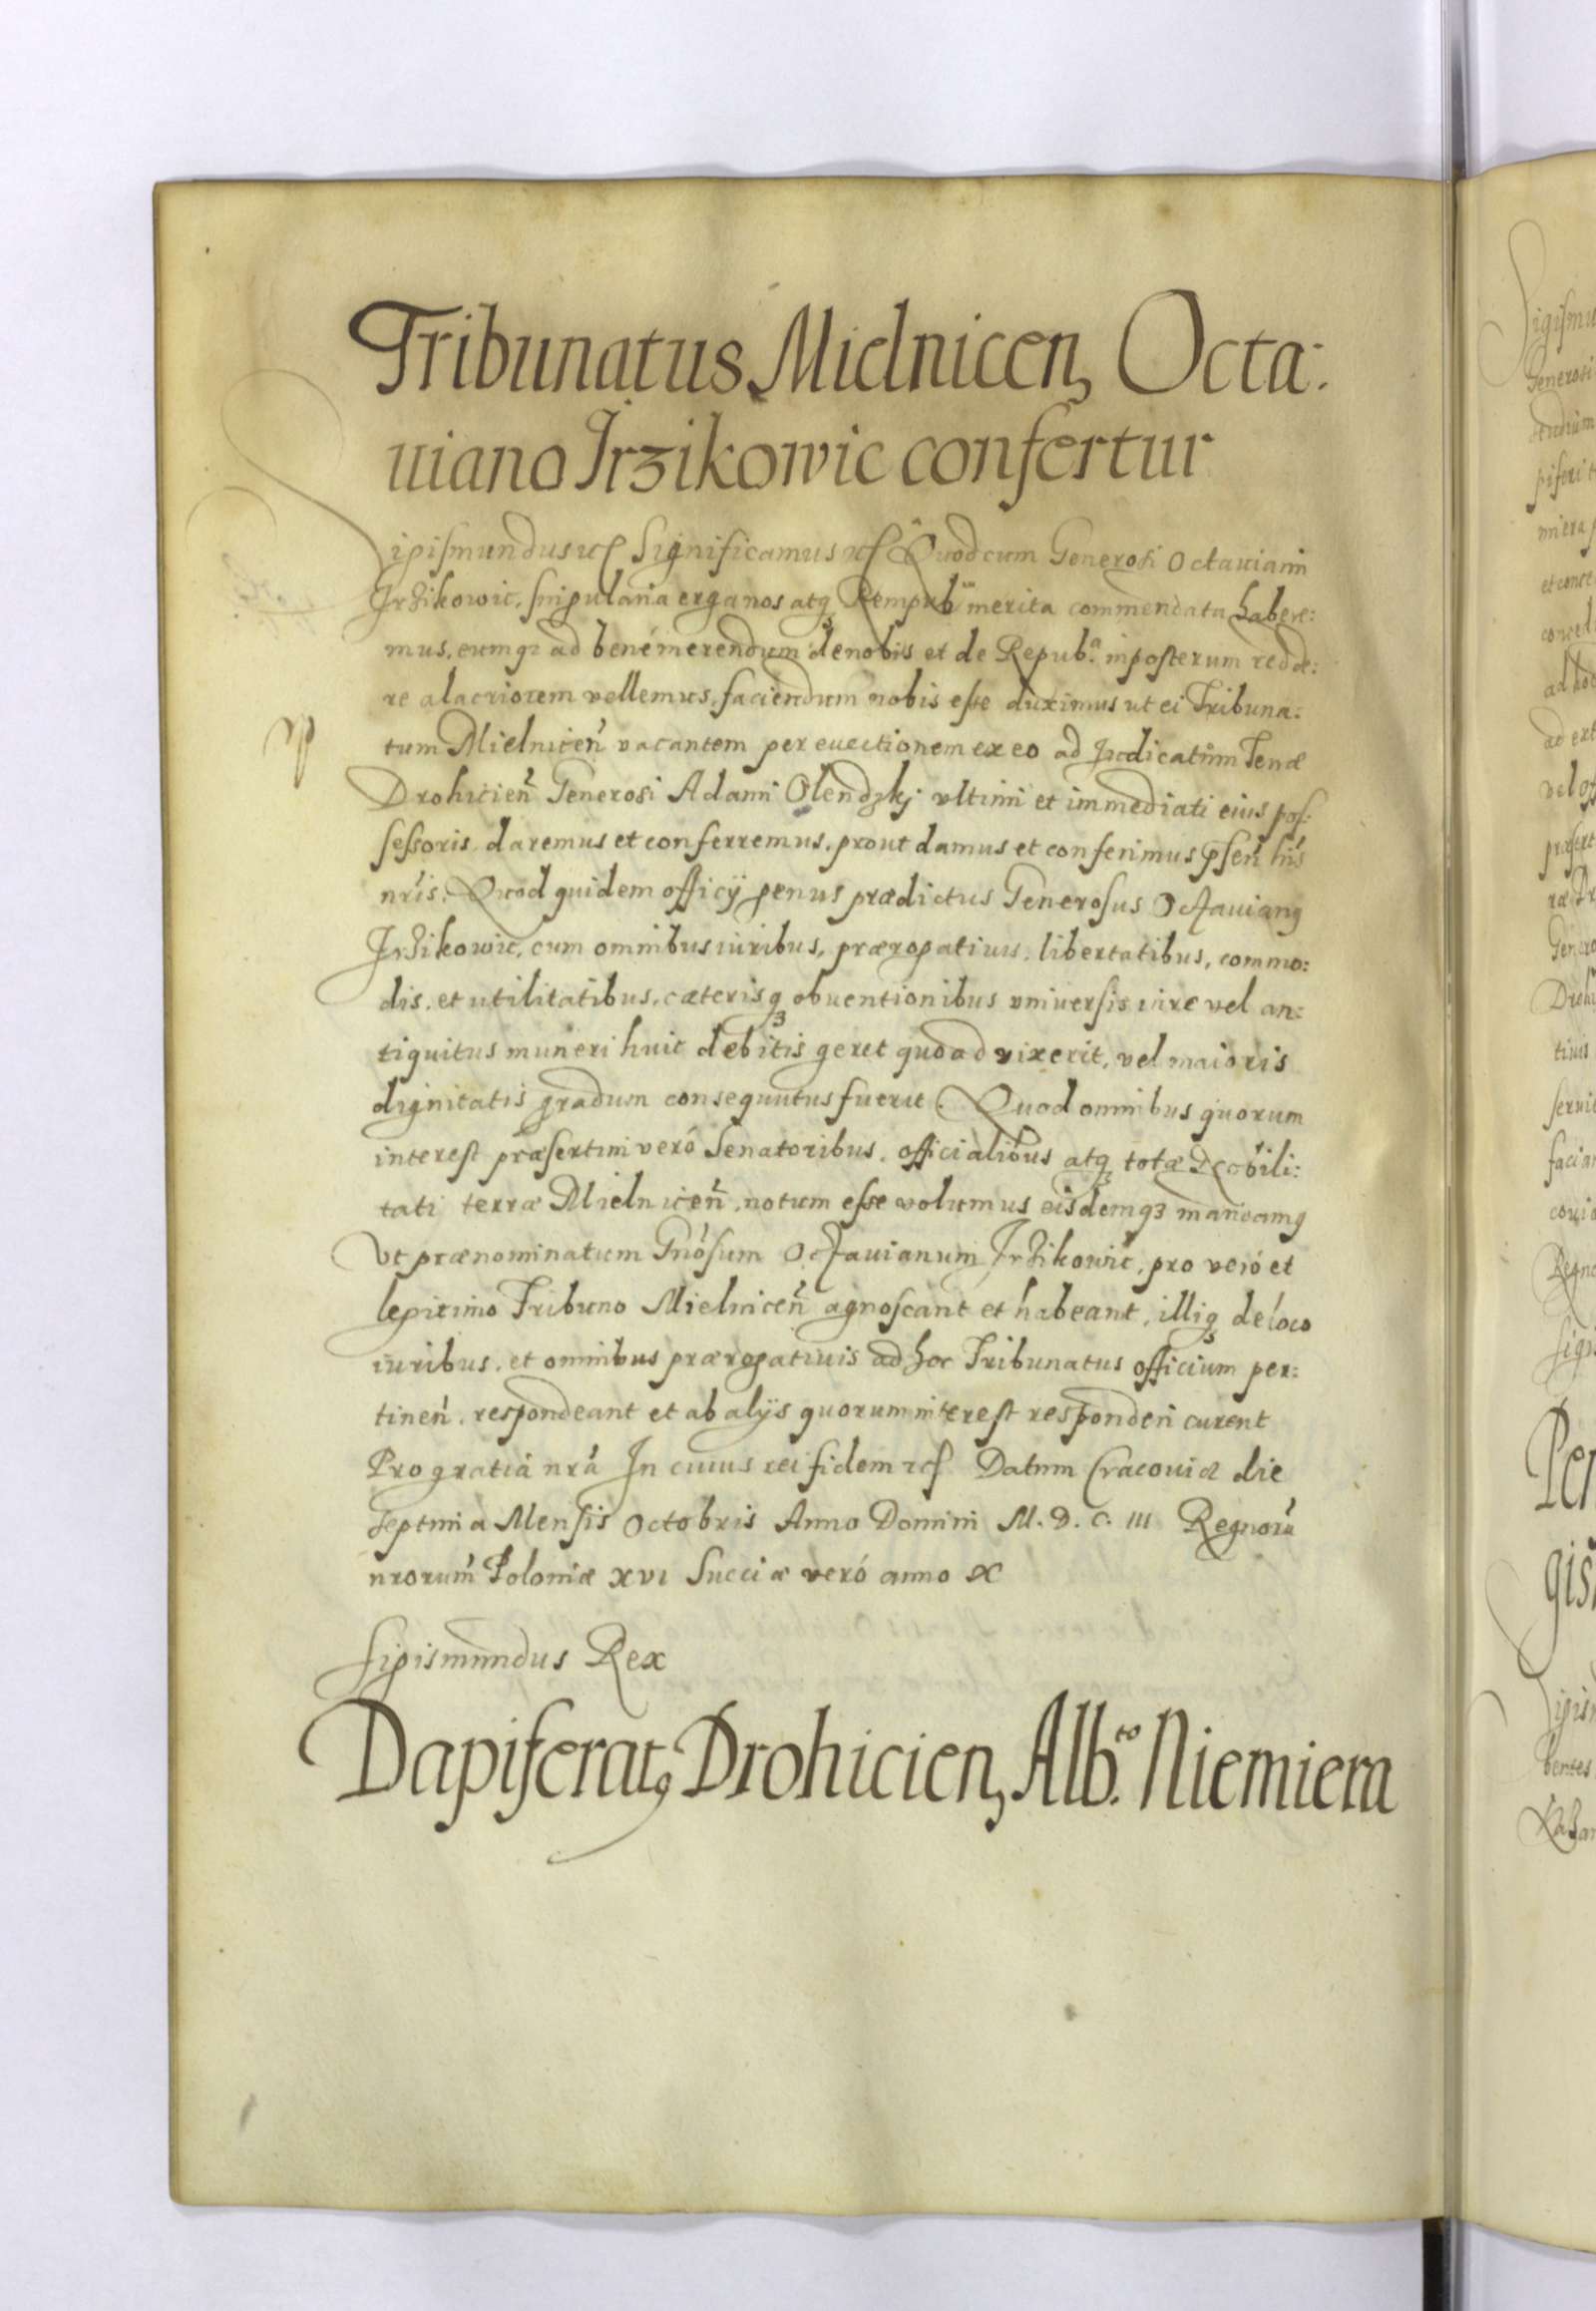 Tribunatus Mielnicen, Octa:
uiano Jrzikowic confertur
Sigismundus etc Significamus etc Quod cum Generosi Octauiani
Jrzikowic, singularia erga nos atq3 Rempub^m merita commendata habere:
mus, eumq3 ad bene merendum de nobis et de Repub.^a in posterum redde:
re alacriorem vellemus, faciendum nobis esse duximus ut ei Tribuna:
tum Mielnicen̄ vacantem per euectionem ex eo ad Iudicatum Terræ
Drohicien̄ Generosi Adami Olendzkj vltimi et immediati eius pos:
sessoris daremus et conferremus, prout damus et conferimus p̄sen̄ lr̄is
nr̄is. Quod quidem officij genus prædictus Generosus Octauianꝰ
Jrzikowic, cum omnibus iuribus, prærogatiuis, libertatibus, commo:
dis, et utilitatibus, cæterisq3 obuentionibus vniuersis iure vel an:
tiquitus muneri huic debitis geret quoad vixerit, vel maioris
dignitatis gradum consequutus fuerit. Quod omnibus quorum
interest præsertim veró Senatoribus, officialibus atq3 totæ Nobili:
tati terræ Mielnicen̄, notum esse volumus eisdemq3 mandamꝰ
Vt prænominatum Gn̄osum Octauianum Jrzikowic, pro veró et
legitimo Tribuno Mielnicen̄ agnoscant et habeant, illiq3 de loco
iuribus, et omnibus prærogatiuis ad hoc Tribunatus officium per:
tinen̄, respondeant et ab alijs quorum interest responderi curent
Pro gratiâ nr̄a In cuius rei fidem etc Datum Cracouiæ die
septima Mensis Octobris Anno Domini M. D. C. III Regnorū
nrorum̄ Poloniæ XVI Sueciæ veró anno X
Sigismundus Rex
Dapiferatꝰ Drohicien, Alb.^to Niemiera